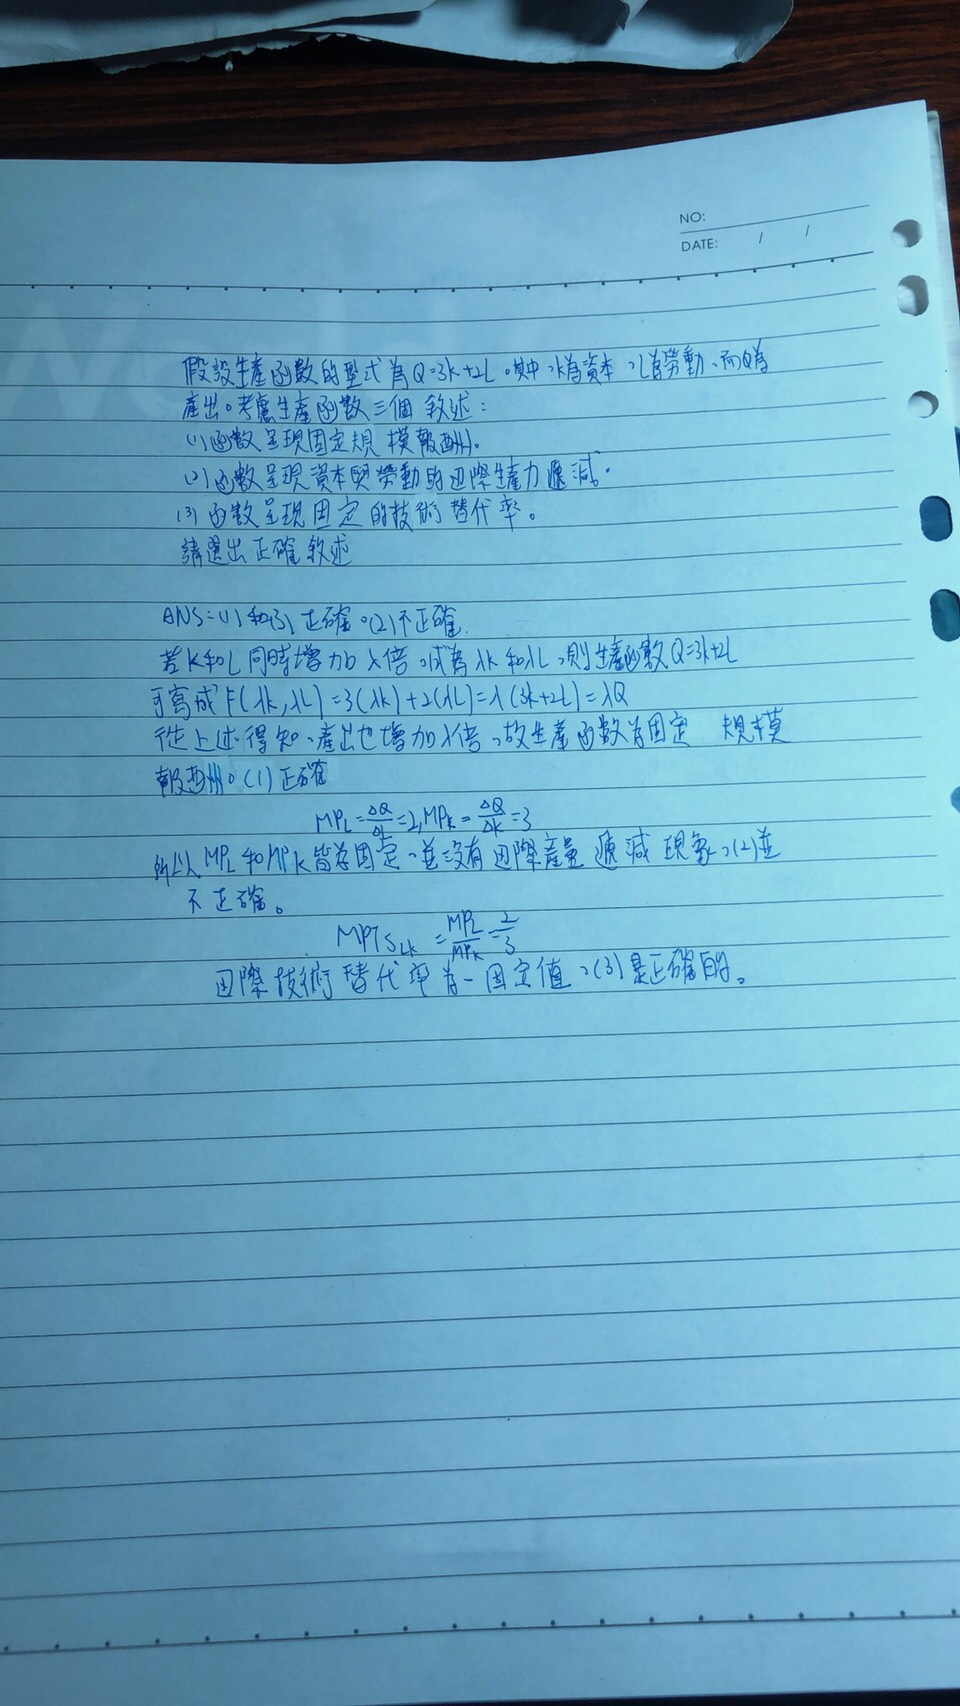 NO:
DATE: / /
假設生產函數的型式為Q=3K+2L。其中,K為資本,L為勞動、而Q為
產出。考慮生產函數三個敘述:
(1)函數呈現固定規模報酬。
(2)函數呈現資本與勞動的边際生產力遞減。
(3)函數呈現固定的技術替代率。
請選出正確敘述
ANS=(1)和(3)正確。(2)不正確.
若K和L同時增加λ倍,成為λK和λL,則生產函數Q=3K+2L
可寫成F(λK,λL)=3(λK)+2(λL)=λ(3K+2L)=λQ
從上述得知、產出也增加λ倍,故生產函數為固定 規模
報酬。(1)正確
MPL=ΔQ/ΔL=2,MPK=ΔQ/ΔK=3
所以MPL和MPK皆為固定、並沒有边際產量遞減現象,(2)並
不正確。
MPTSLK=MPL/MPK=2/3
边際技術替代率為一固定值,(3)是正確的。